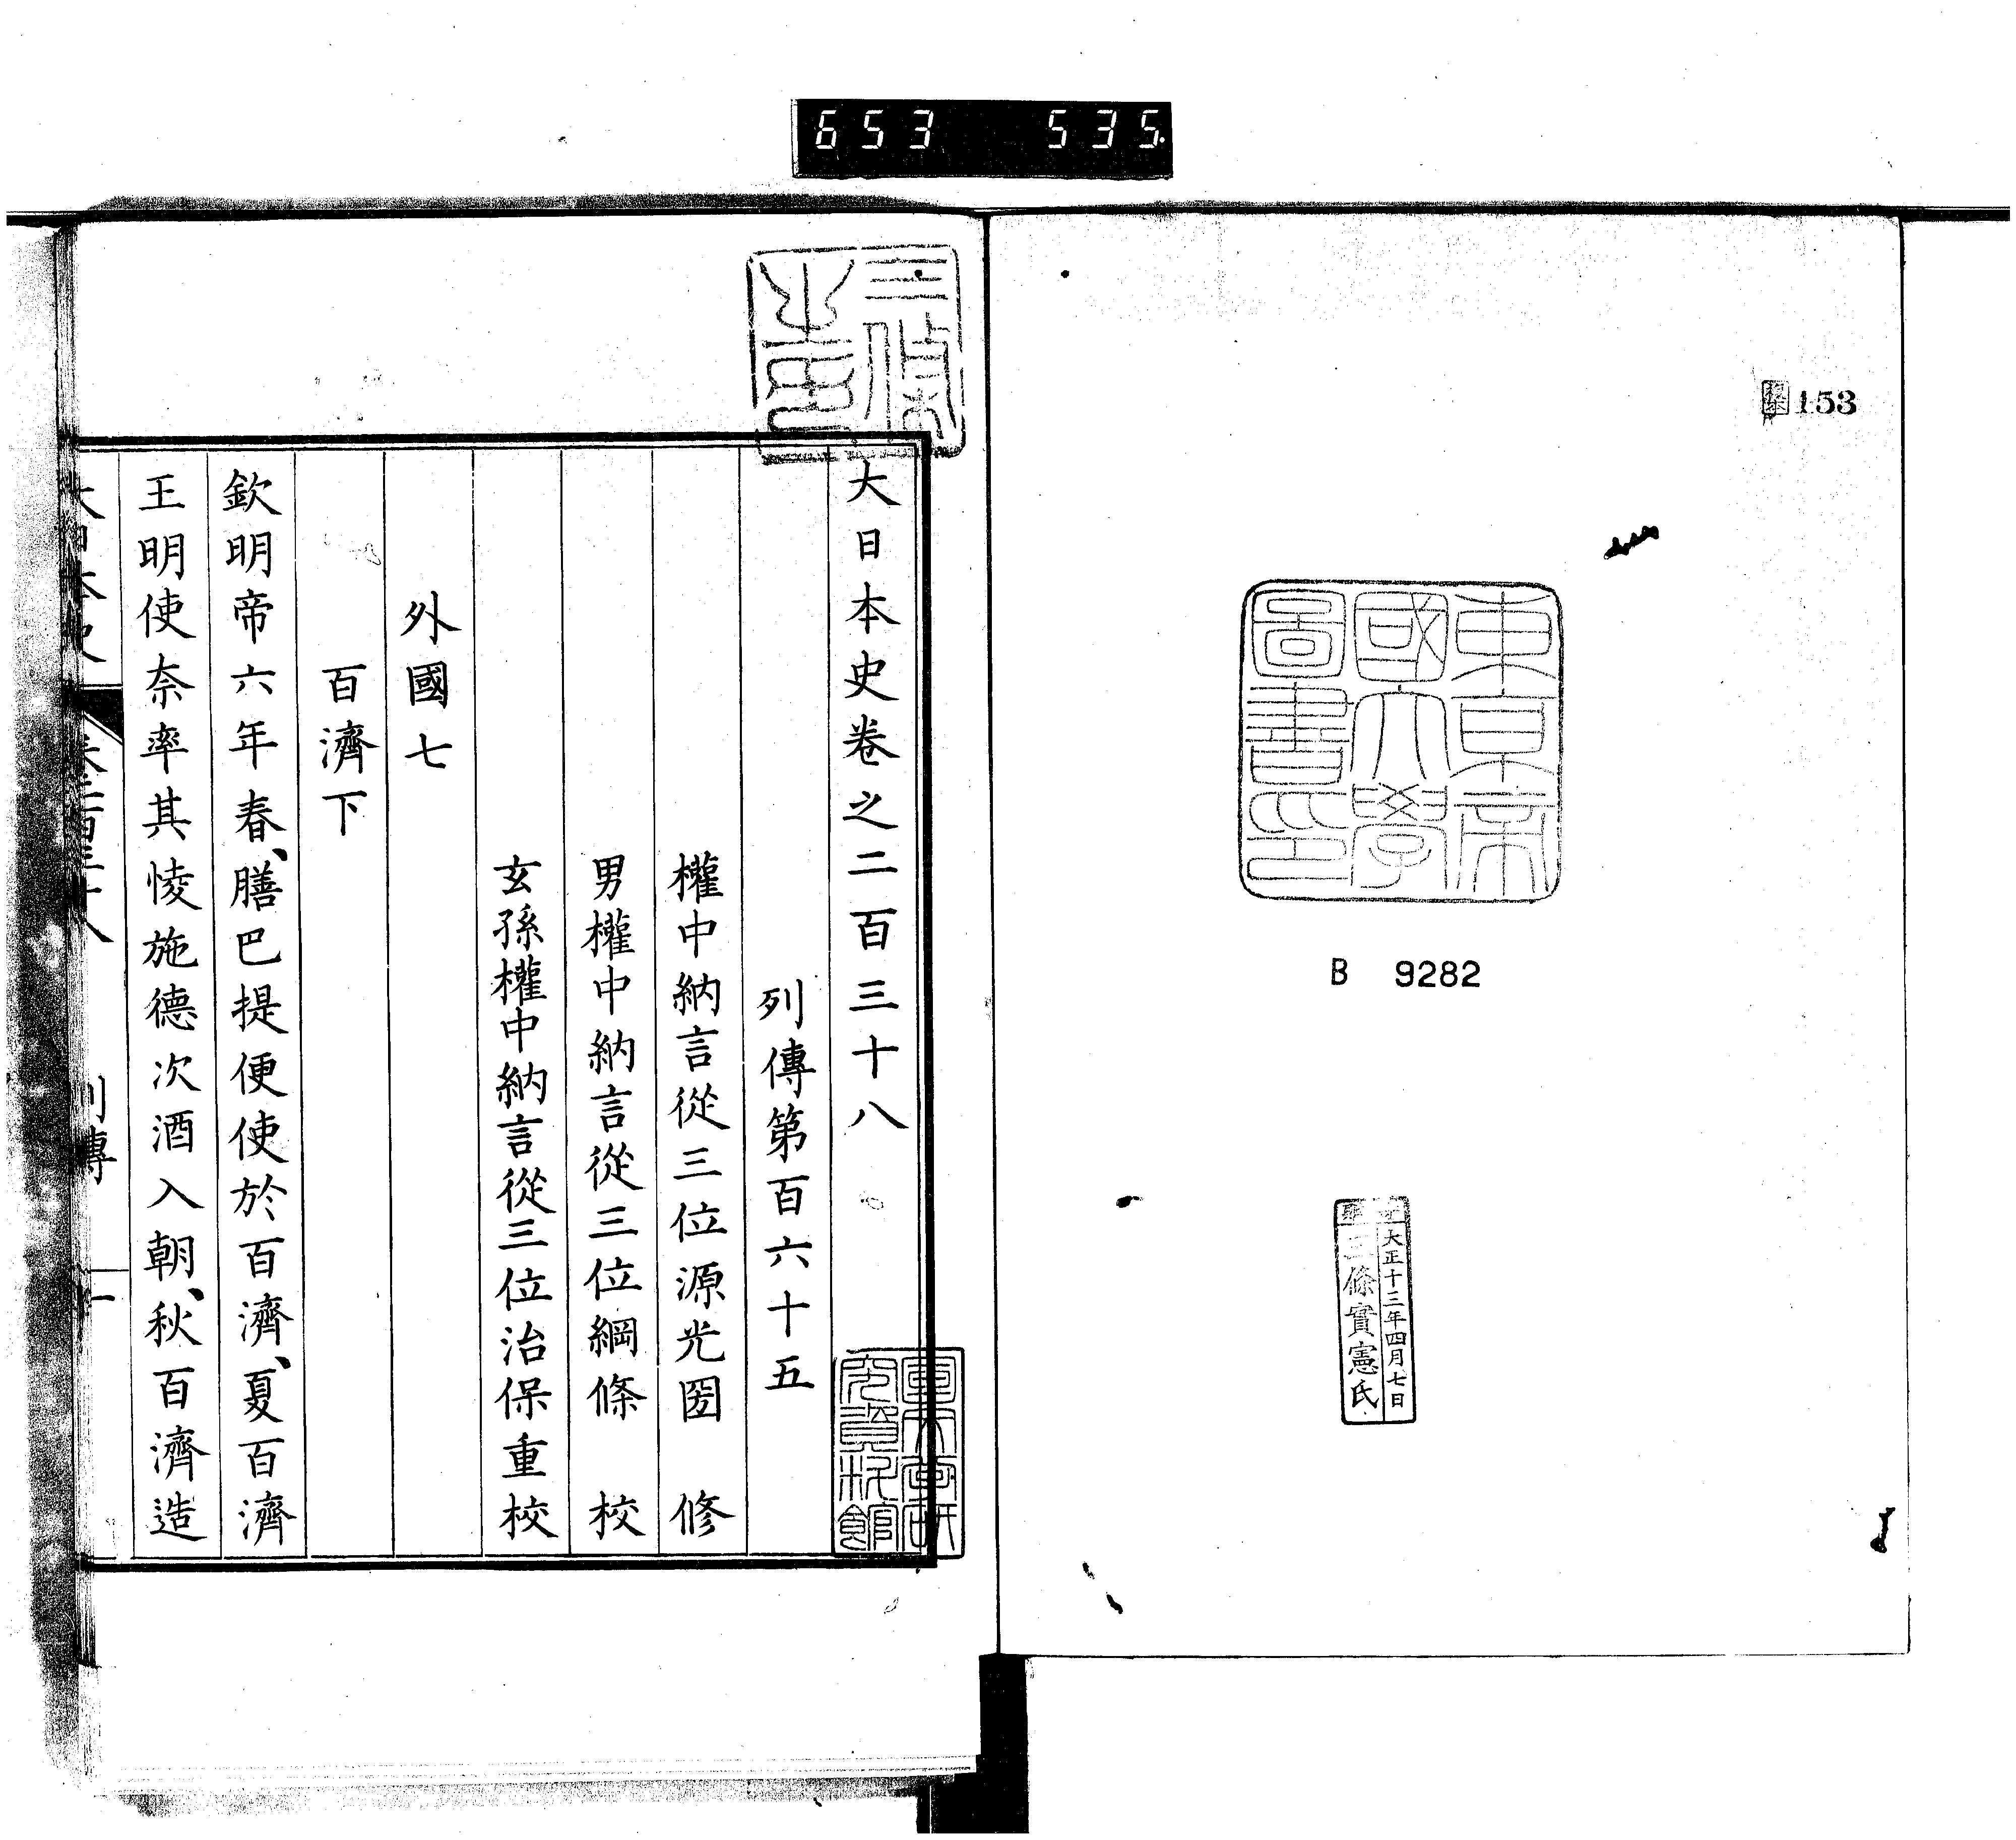 653 535.
153
東京帝
國大學
圖書印
B 9282
大正十三年四月七日
三條實憲氏
三條
大日本史卷之二百三十八
列傳第百六十五
權中納言從三位源光圀 修
男權中納言從三位綱條 校
玄孫權中納言從三位治保重校
外國七
百濟下
欽明帝六年春、膳巴提便使於百濟、夏、百濟
王明使奈率其㥄施德次酒入朝、秋、百濟造
列傳